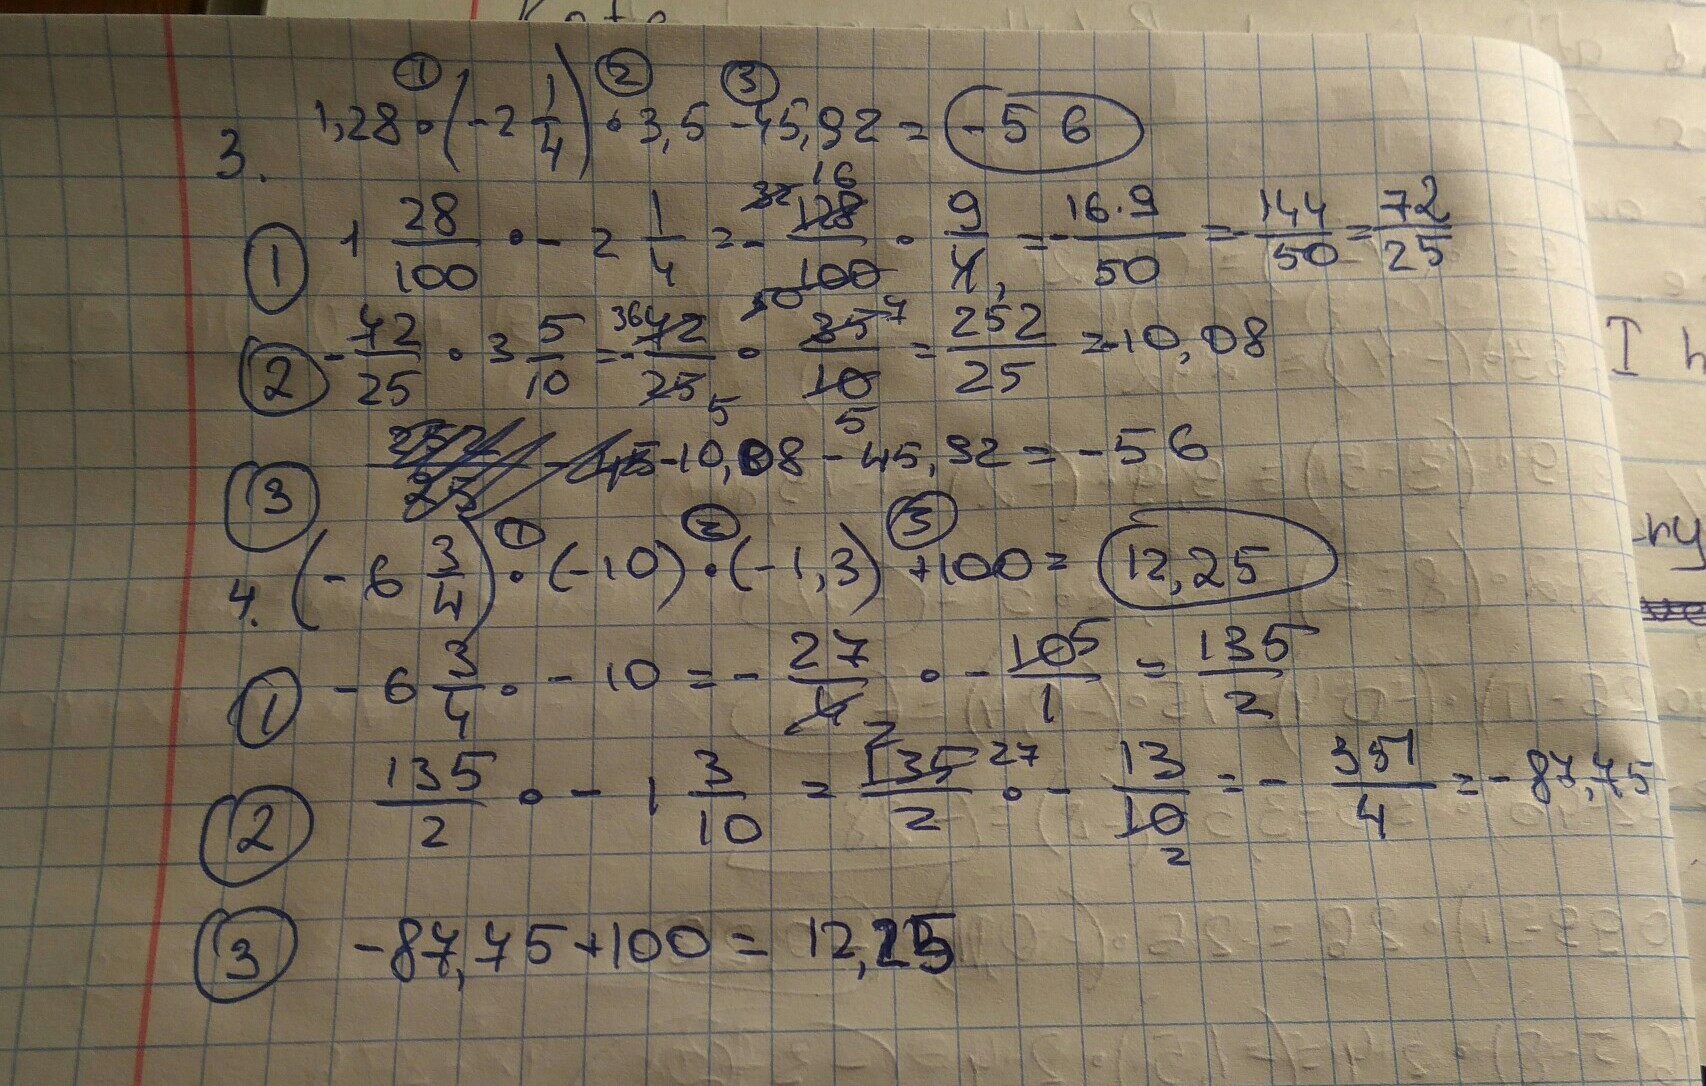 Kate
3. 1,28 · (-2 1/4) · 3,5 - 45,92 = -56
① 1 28/100 · - 2 1/4 = - 128/100 · 9/4 = - 16·9/50 = - 144/50 = 72/25
② - 72/25 · 3 5/10 = - 72/25 · 35/10 = 252/25 = -10,08
③ -10,08 - 45,92 = -56
4. (-6 3/4) · (-10) · (-1,3) + 100 = 12,25
① - 6 3/4 · - 10 = - 27/4 · - 10/1 = 135/2
② 135/2 · - 1 3/10 = 135/2 · - 13/10 = - 351/4 = - 87,75
③ -87,75 + 100 = 12,25
I h
ny